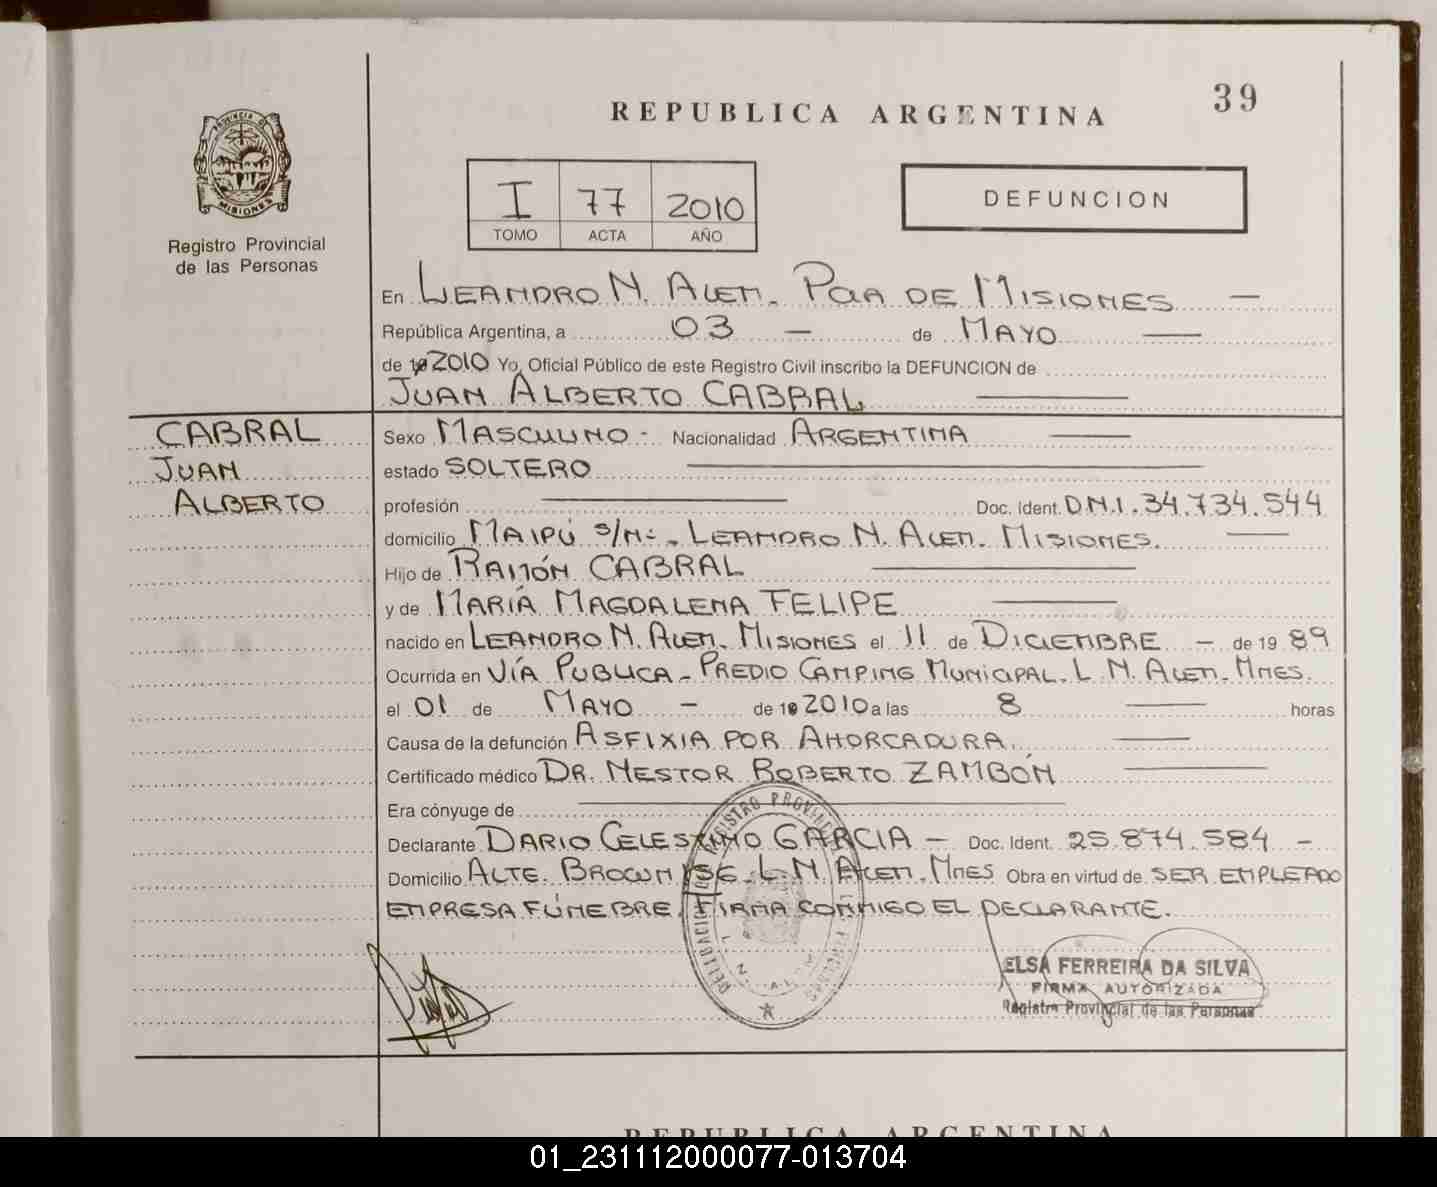 39
REPUBLICA ARGENTINA
PROVINCIA DE
MISIONES
Registro Provincial
de las Personas
I 77 2010
TOMO ACTA AÑO
DEFUNCION
En LEANDRO N. ALEM. PCIA DE MISIONES —
República Argentina, a 03 — de MAYO —
de 2010 Yo, Oficial Público de este Registro Civil inscribo la DEFUNCION de
JUAN ALBERTO CABRAL —
CABRAL
JUAN
ALBERTO
Sexo MASCULINO - Nacionalidad ARGENTINA —
estado SOLTERO —
profesión — Doc. Ident. D.N.I. 34.734.544
domicilio MAIPÚ S/Nº - LEANDRO N. ALEM. MISIONES. —
Hijo de RAMÓN CABRAL —
y de MARIA MAGDALENA FELIPE —
nacido en LEANDRO N. ALEM. MISIONES el 11 de DICIEMBRE — de 19 89
Ocurrida en VÍA PUBLICA - PREDIO CAMPING MUNICIPAL. L. N. ALEM. MNES.
el 01 de MAYO — de 2010 a las 8 — horas
Causa de la defunción ASFIXIA POR AHORCADURA. —
Certificado médico DR. NESTOR ROBERTO ZAMBÓN —
Era cónyuge de —
Declarante DARIO CELESTINO GARCIA — Doc. Ident. 25.874.584 —
Domicilio ALTE. BROWN L. N. ALEM. MNES Obra en virtud de SER EMPLEADO
EMPRESA FÚNEBRE. FIRMA CONMIGO EL DECLARANTE.
ELSA FERREIRA DA SILVA
FIRMA AUTORIZADA
Registro Provincial de las Personas
REPUBLICA ARGENTINA
01_231112000077-013704